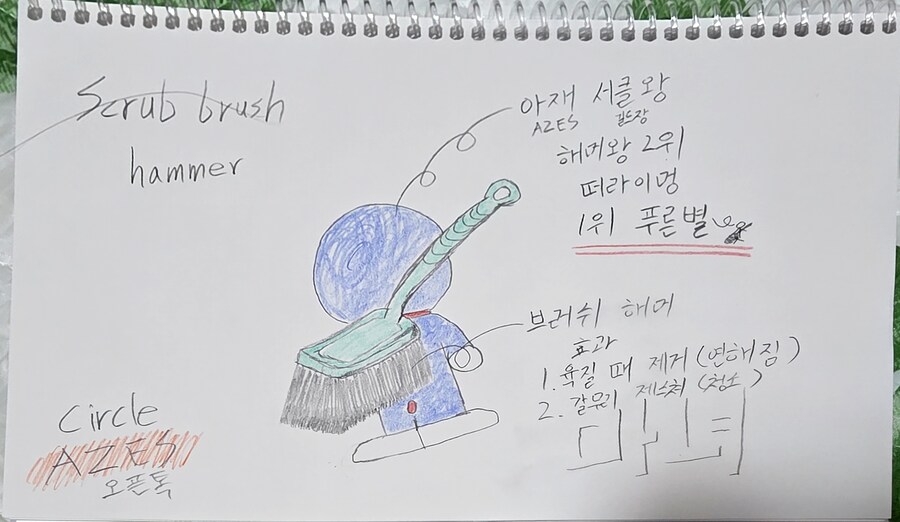 Scrub brush
hammer
아재 서클왕
AZES 길드장
해머왕 2위
떠라이멍
1위 푸른별
브러쉬 해머
효과
1. 육질 때 제거 (연해짐)
2. 갈무리 제스쳐 (청소)
Circle
AZES
오픈톡